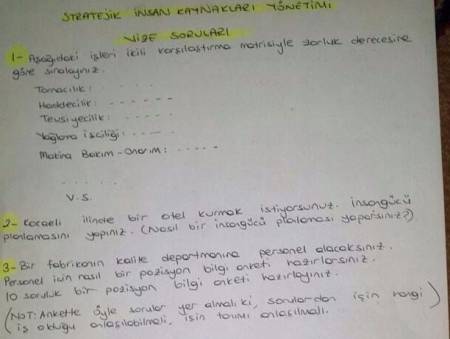 STRATEJİK İNSAN KAYNAKLARI YÖNETİMİ
VİZE SORULARI
1- Aşağıdaki işleri ikili karşılaştırma matrisiyle zorluk derecesine
göre sıralayınız.
Tornacılık: . . . . .
Haddecilik: - - - - -
Tesviyecilik: . . . . .
Yağlama işçiliği: . . - - .
Makina Bakım-Onarım: - - - - -
. . . . .
V.S.
2- Kocaeli ilinde bir otel kurmak istiyorsunuz. insangücü
planlamasını yapınız. (Nasıl bir insangücü planlaması yaparsınız?)
3- Bir fabrikanın kalite departmanına personel alacaksınız.
Personel için nasıl bir pozisyon bilgi anketi hazırlarsınız.
10 soruluk bir pozisyon bilgi anketi hazırlayınız.
(NOT: Ankette öyle sorular yer almalı ki, sorulardan işin hangi
iş olduğu anlaşılabilmeli, işin tanımı anlaşılmalı.)